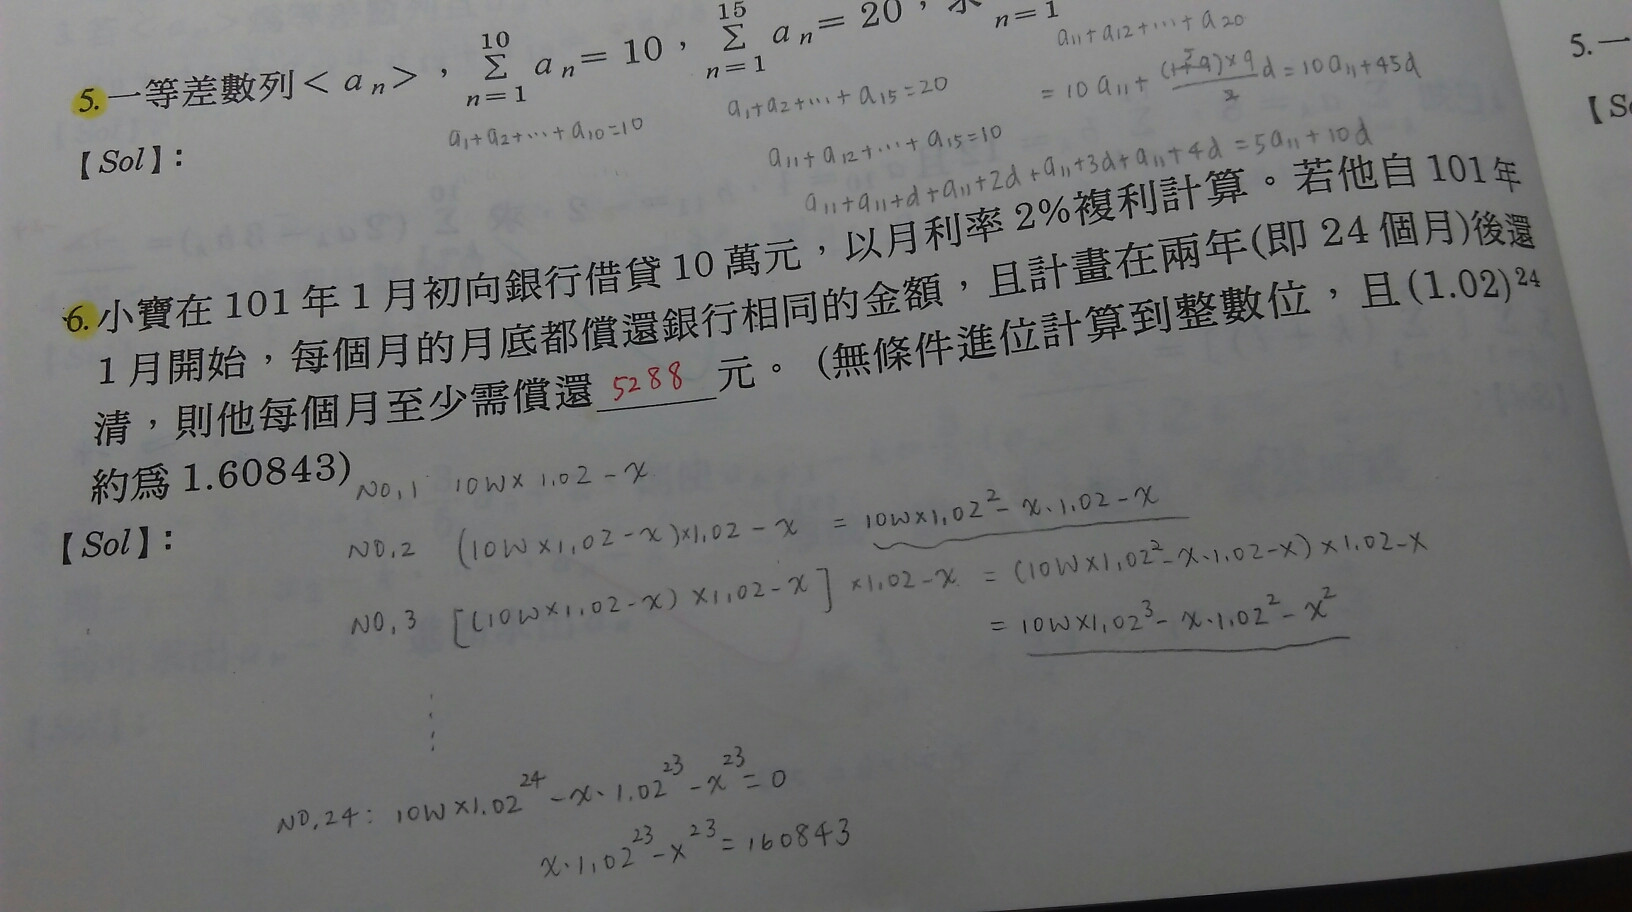 5. 一等差數列< a n > , 10 Σ n=1 a n = 10 , 15 Σ n=1 a n = 20 , 求 n=1
a₁+a₂+⋯+a₁₀=10
a₁+a₂+⋯+a₁₅=20
a₁₁+a₁₂+⋯+a₁₅=10
a₁₁+a₁₁+d+a₁₁+2d+a₁₁+3d+a₁₁+4d=5a₁₁+10d
a₁₁+a₁₂+⋯+a₂₀
=10a₁₁+ d=10a₁₁+45d
【Sol】:
6. 小寶在 101 年 1 月初向銀行借貸 10 萬元,以月利率 2%複利計算。若他自 101 年
1 月開始,每個月的月底都償還銀行相同的金額,且計畫在兩年(即 24 個月)後還
清,則他每個月至少需償還 5288 元。(無條件進位計算到整數位,且 (1.02)²⁴
約爲 1.60843)
【Sol】:
NO.1 10W×1.02-x
NO.2 (10W×1.02-x)×1.02-x = 10W×1.02²-x·1.02-x
NO.3 [(10W×1.02-x)×1.02-x]×1.02-x = (10W×1.02²-x·1.02-x)×1.02-x
= 10W×1.02³-x·1.02²-x²
⋮
NO.24: 10W×1.02²⁴-x·1.02²³-x²³=0
x·1.02²³-x²³=160843
5. 一
【So